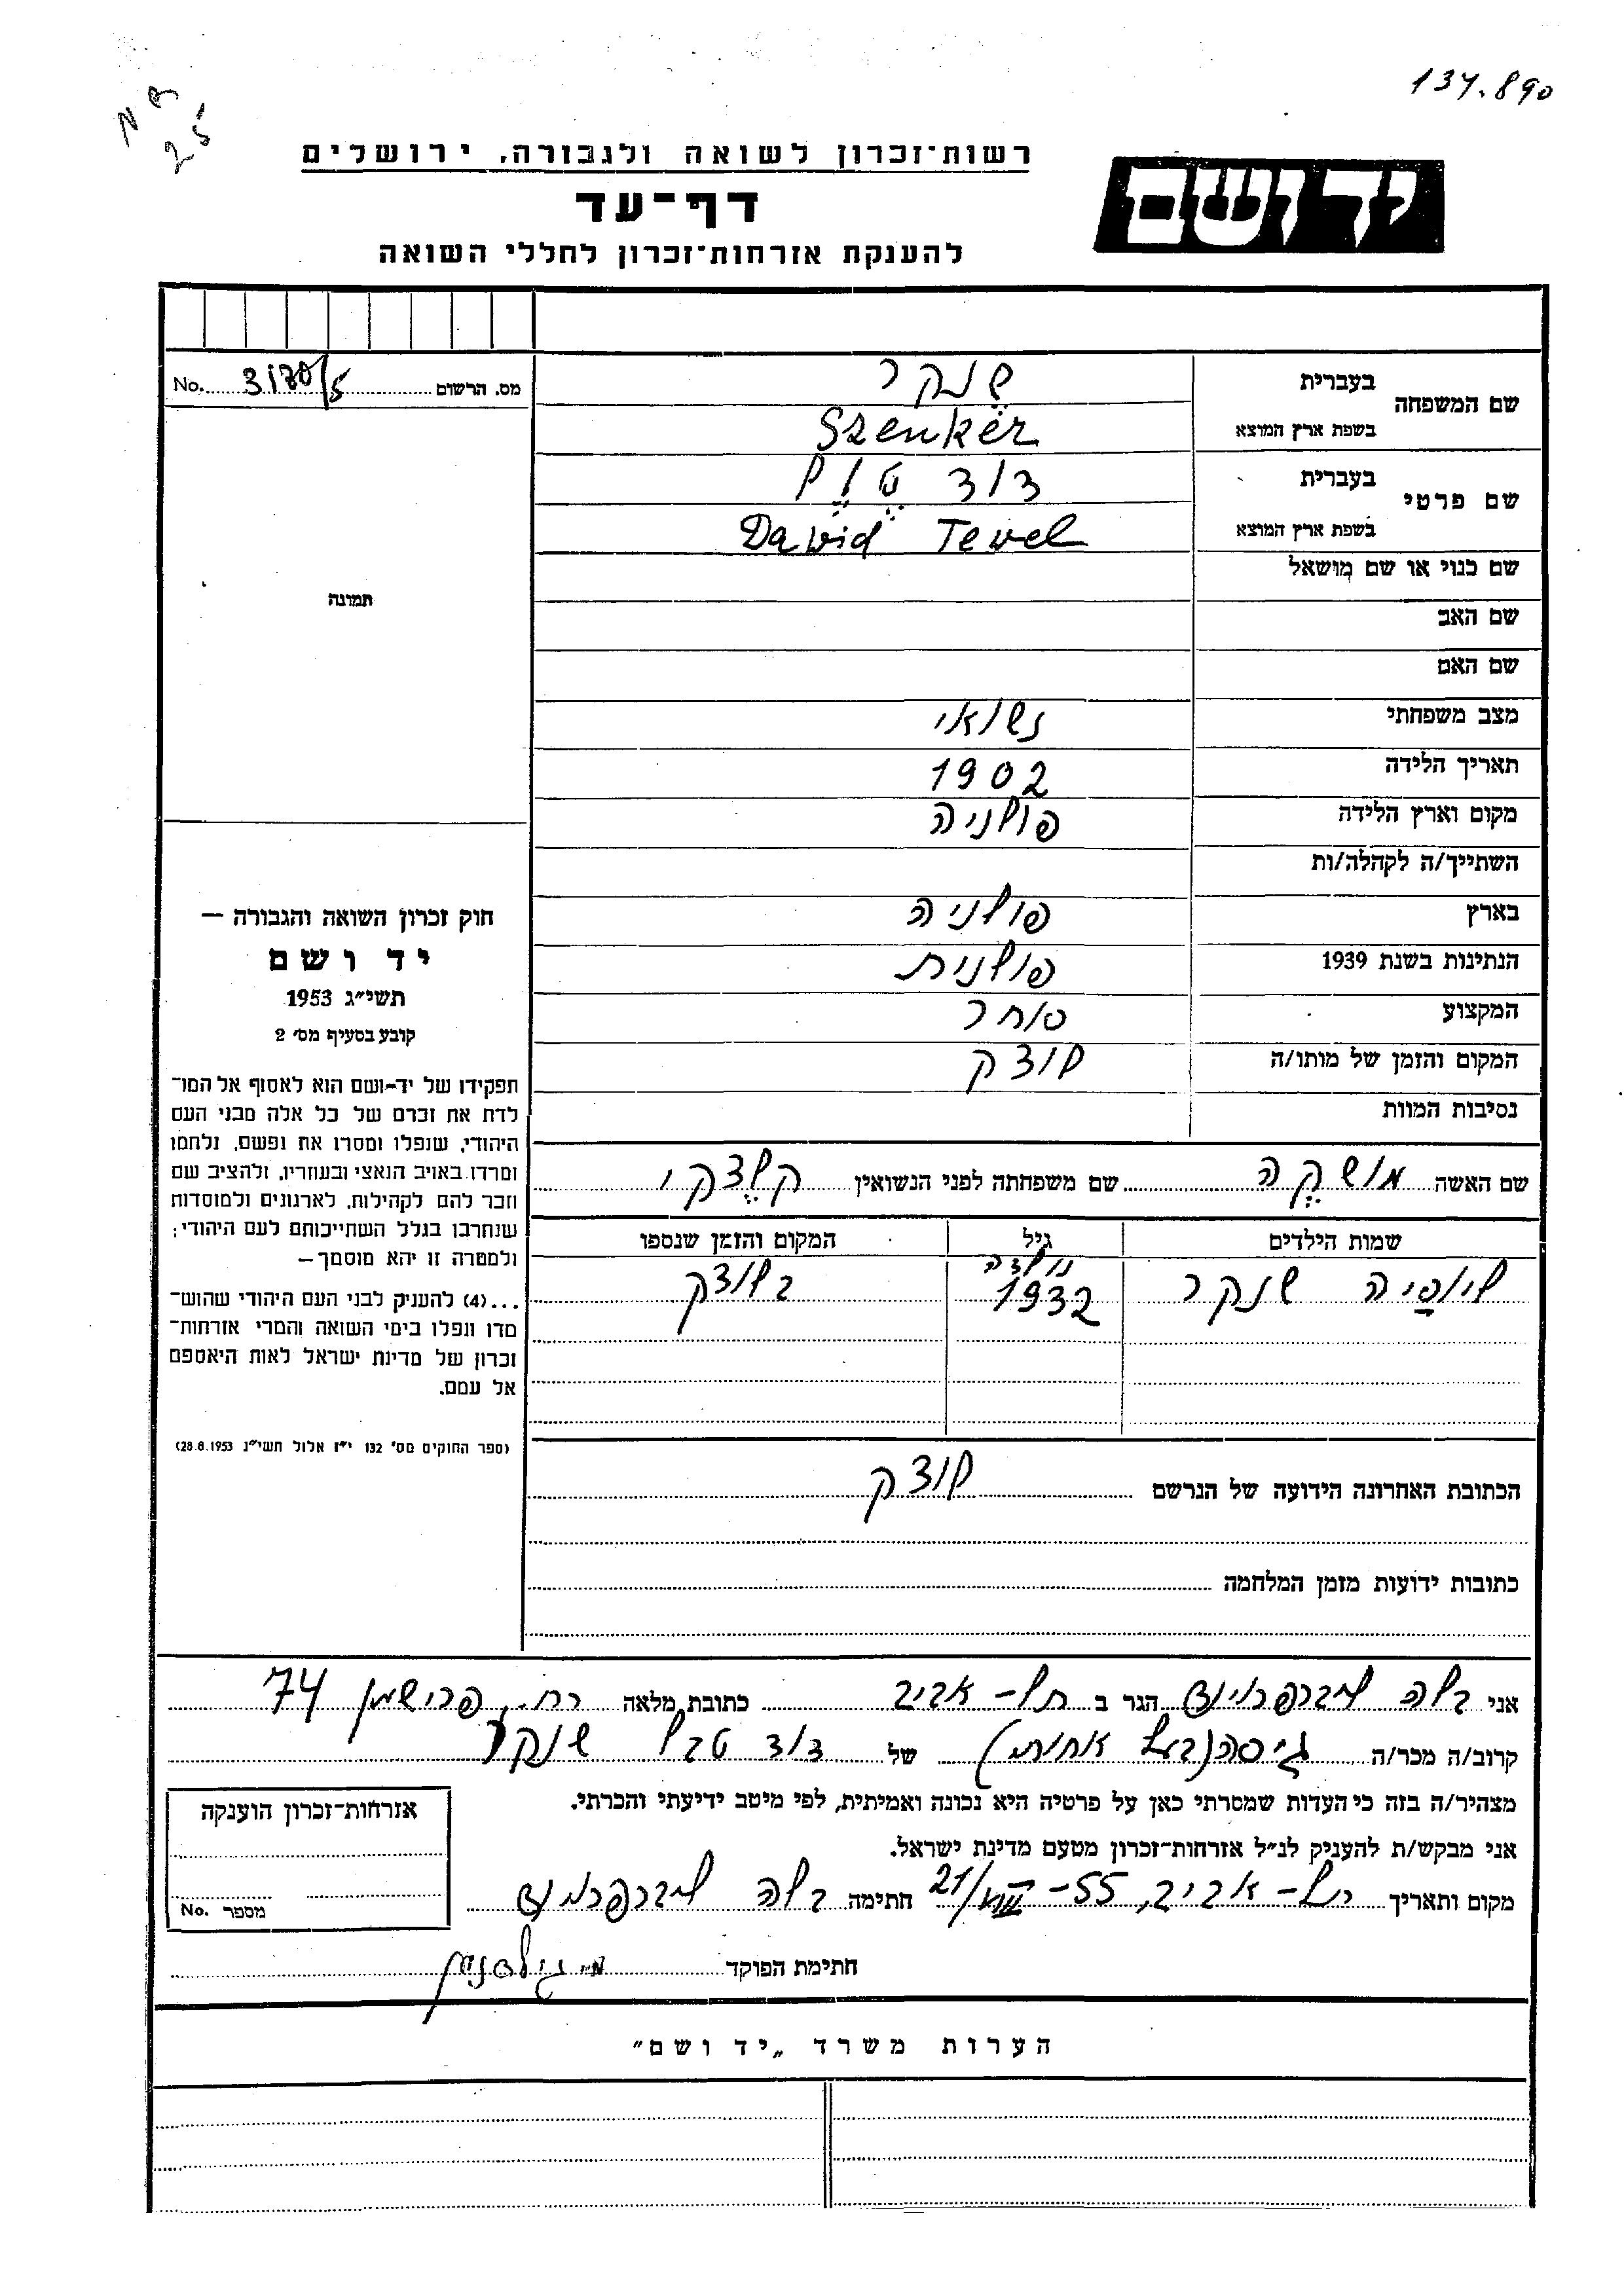 134.890
No
25
רשות-זכרון לשואה ולגבורה, ירושלים
יד ושם
דף-עד
להענקת אזרחות-זכרון לחללי השואה
מס. הרשום 3170/5 No.
שם המשפחה
בעברית שנקר
בשפת ארץ המוצא Szenker
שם פרטי
בעברית דוד טול
בשפת ארץ המוצא Dawid Tevel
שם כנוי או שם מושאל
תמונה
שם האב
שם האם
מצב משפחתי נשואי
תאריך הלידה 1902
מקום וארץ הלידה פולניה
השתייך/ה לקהלה/ות
בארץ פולניה
הנתינות בשנת 1939 פולנית
המקצוע סוחר
המקום והזמן של מותו/ה לודז
נסיבות המוות
שם האשה מושקה שם משפחתה לפני הנשואין
שמות הילדים גיל המקום והזמן שנספו
שנקר נולדה 1932
הכתובת האחרונה הידועה של הנרשם
כתובות ידועות מזמן המלחמה
חוק זכרון השואה והגבורה —
יד ושם
תשי״ג 1953
קובע בסעיף מס׳ 2
תפקידו של יד-ושם הוא לאסוף אל המו-
לדת את זכרם של כל אלה מבני העם
היהודי, שנפלו ומסרו את נפשם, נלחמו
ומרדו באויב הנאצי ובעוזריו, ולהציב שם
וזכר להם לקהילות, לארגונים ולמוסדות
שנחרבו בגלל השתייכותם לעם היהודי;
ולמטרה זו יהא מוסמך—
...(4) להעניק לבני העם היהודי שהוש-
מדו ונפלו בימי השואה והמרי אזרחות-
זכרון של מדינת ישראל לאות היאספם
אל עמם.
(ספר החוקים מס׳ 132 י״ז אלול תשי״ג 28.8.1953)
אני בלה הגר ב תל-אביב כתובת מלאה רח. פרישמן 74
קרוב/ה מכר/ה גיסה (בעל אחות) של דוד טבל שנקר
מצהיר/ה בזה כי העדות שמסרתי כאן על פרטיה היא נכונה ואמיתית, לפי מיטב ידיעתי והכרתי.
אני מבקש/ת להעניק לנ״ל אזרחות-זכרון מטעם מדינת ישראל.
מקום ותאריך תל-אביב, 21/VIII-55 חתימה בלה
חתימת הפוקד
אזרחות-זכרון הוענקה
מספר No.
הערות משרד „יד ושם״